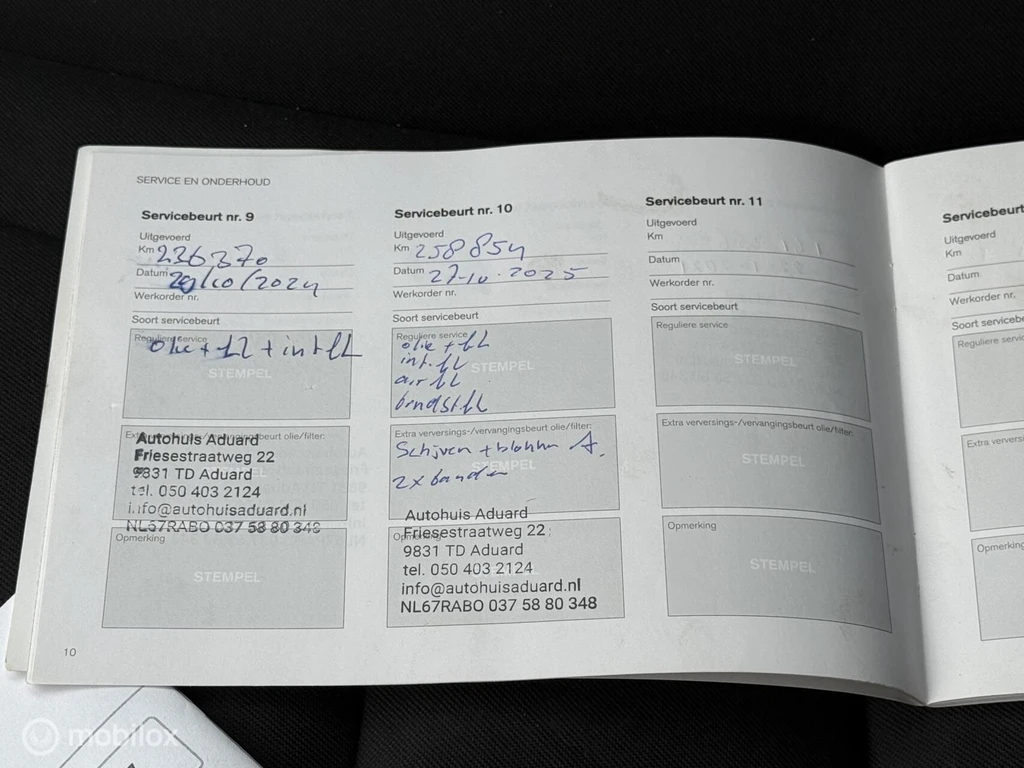 SERVICE EN ONDERHOUD
Servicebeurt nr. 9
Uitgevoerd
Km 236370
Datum 29/10/2024
Werkorder nr.
Soort servicebeurt
Reguliere service
olie + fL + int fL
STEMPEL
Extra verversings-/vervangingsbeurt olie/filter:
Autohuis Aduard
Friesestraatweg 22
9831 TD Aduard
tel. 050 403 2124
info@autohuisaduard.nl
NL67RABO 037 58 80 348
Opmerking
STEMPEL
10
Servicebeurt nr. 10
Uitgevoerd
Km 258854
Datum 27-10-2025
Werkorder nr.
Soort servicebeurt
Reguliere service
olie + fL
int. fL
air fL
brndst fL
STEMPEL
Extra verversings-/vervangingsbeurt olie/filter:
Schijven + blokken A.
STEMPEL
2x banden
Opmerking
Autohuis Aduard
Friesestraatweg 22
9831 TD Aduard
tel. 050 403 2124
info@autohuisaduard.nl
NL67RABO 037 58 80 348
Servicebeurt nr. 11
Uitgevoerd
Km
Datum
Werkorder nr.
Soort servicebeurt
Reguliere service
STEMPEL
Extra verversings-/vervangingsbeurt olie/filter:
STEMPEL
Opmerking
STEMPEL
Servicebeurt
Uitgevoerd
Km
Datum
Werkorder nr.
Soort servicebe
Reguliere service
Extra versings
Opmerking
mobilox